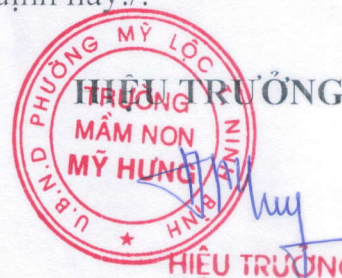 định này./.
HIỆU TRƯỞNG
U.B.N.D PHƯỜNG MỸ LỘC T. NINH BÌNH
TRƯỜNG
MẦM NON
MỸ HƯNG
★
HIỆU TRƯỞNG